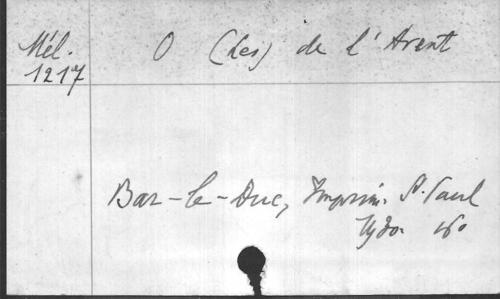 Mél.
1217
O (Les) de l'Avent
Bar-le-Duc, Imprim. St. Paul
16º